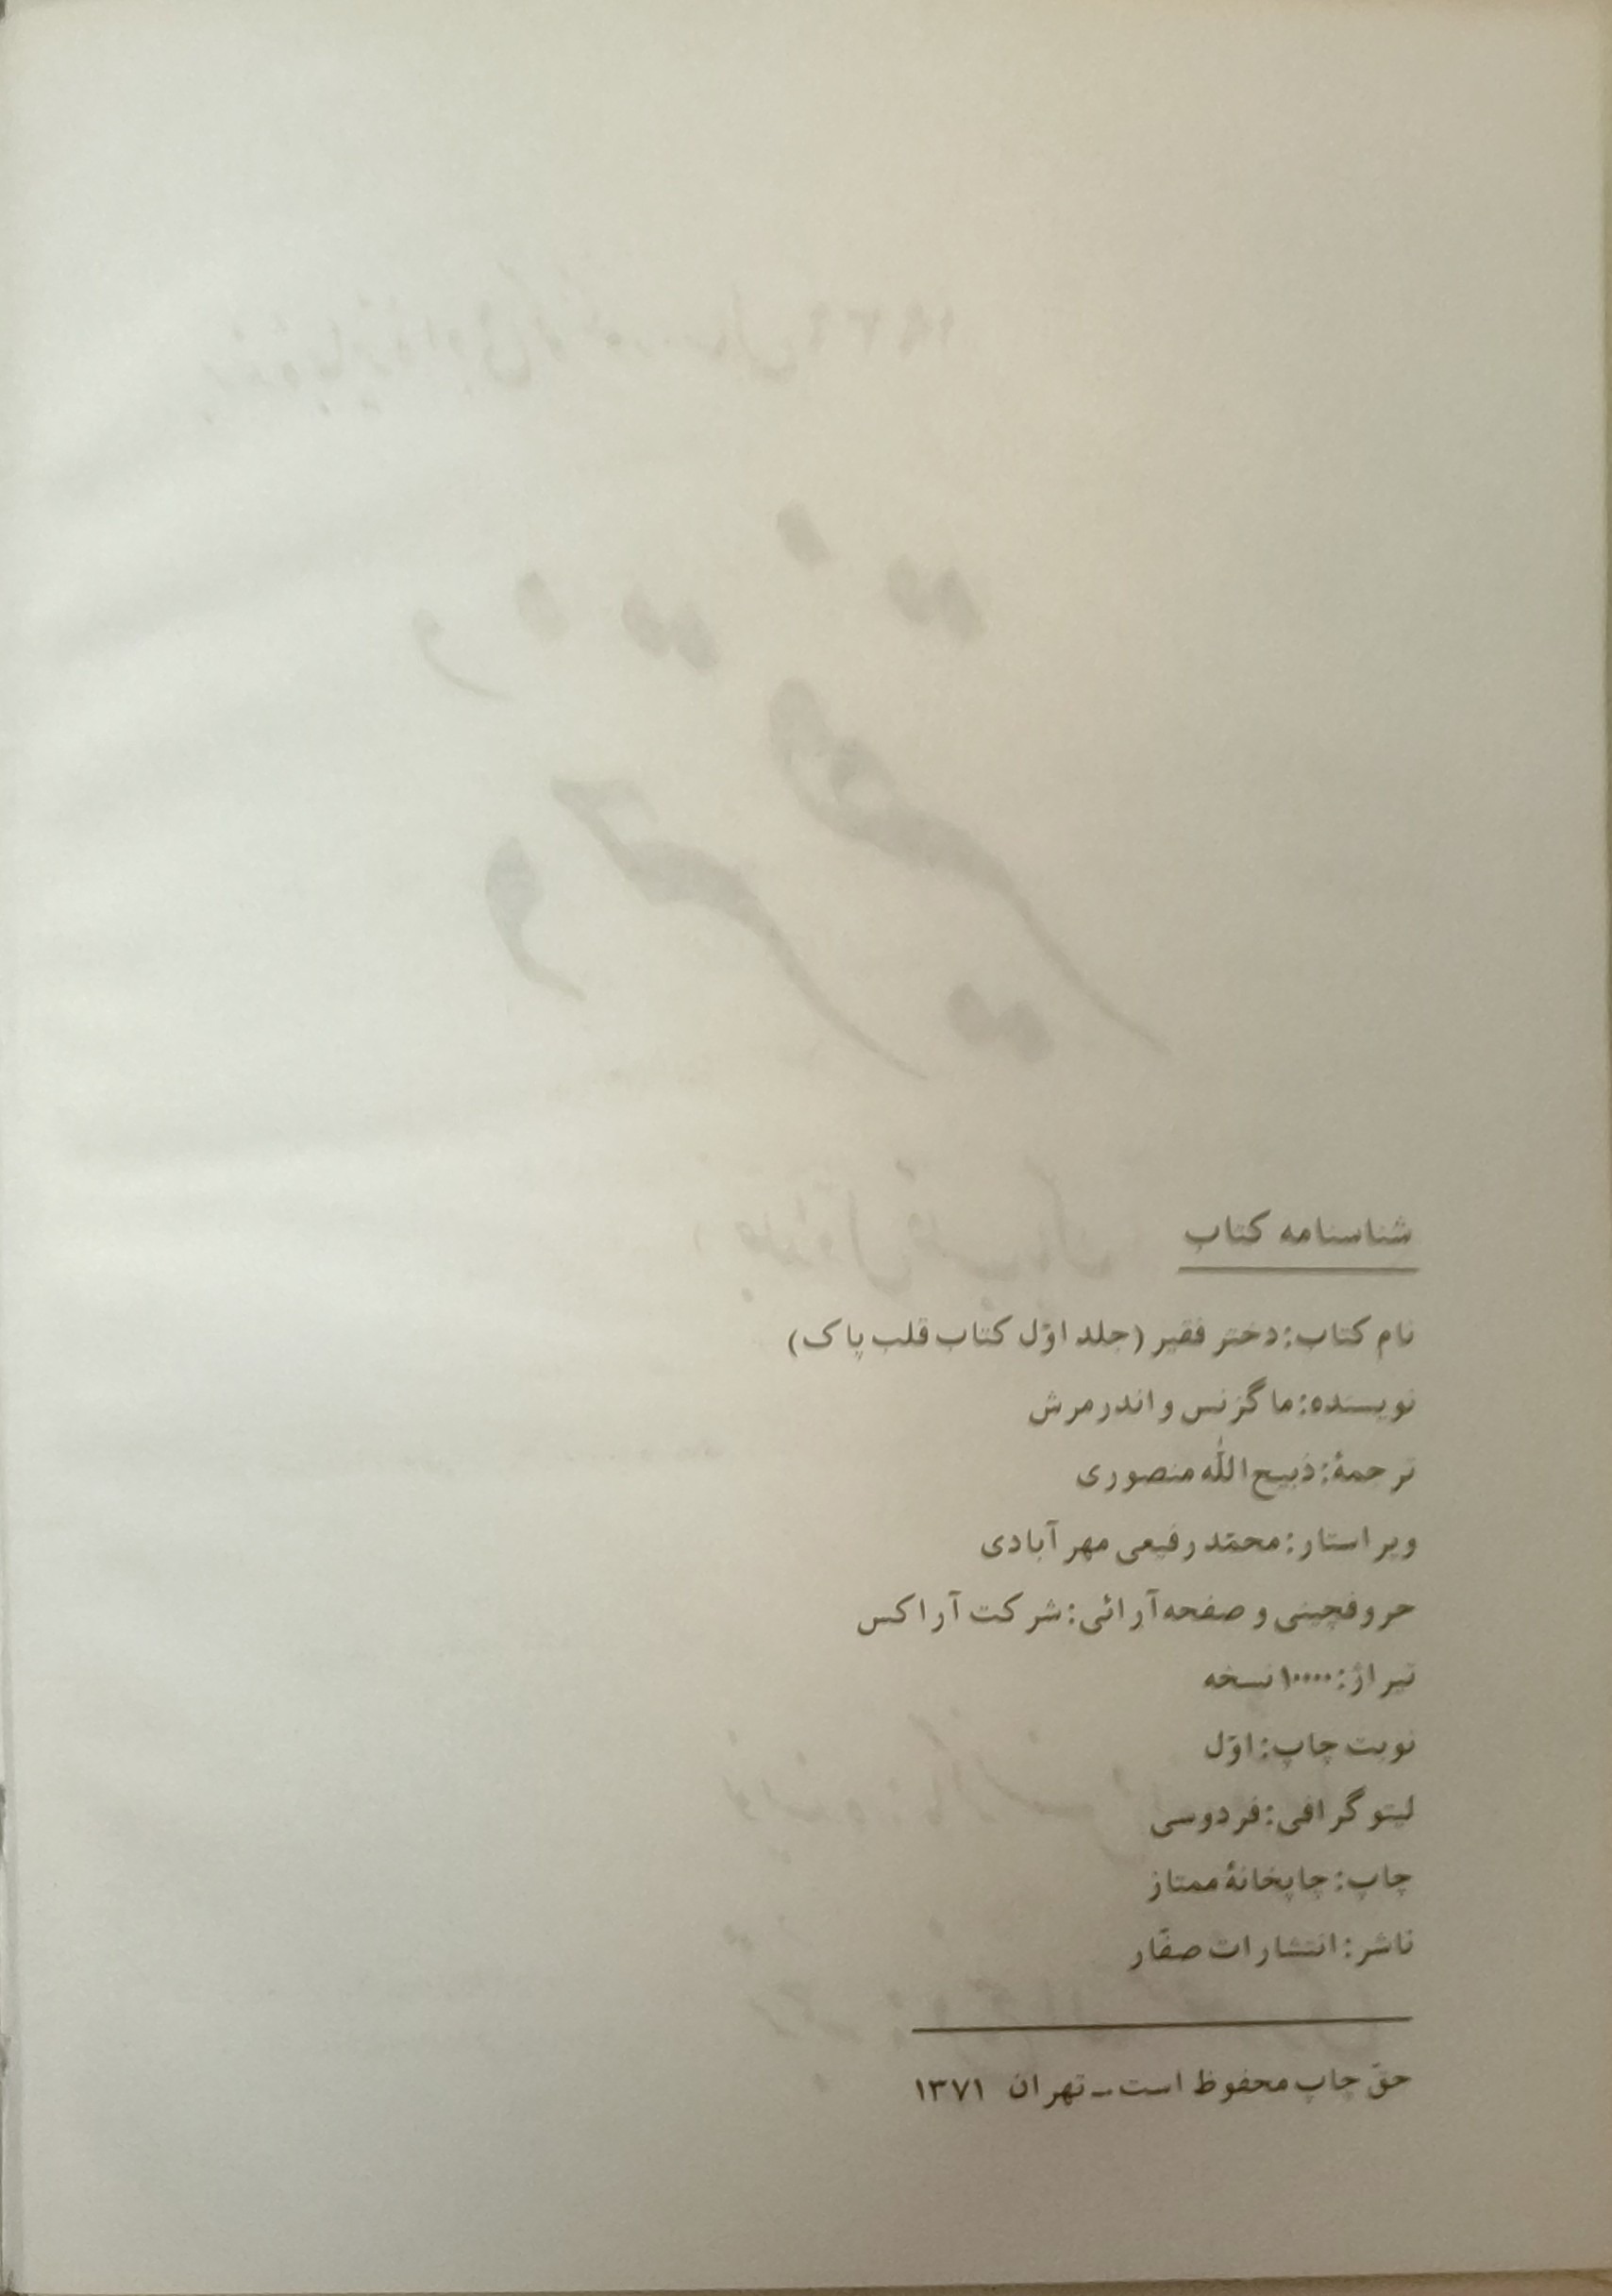 شناسنامه کتاب
نام کتاب: دختر فقیر (جلد اوّل کتاب قلب پاک)
نویسنده: ماگزنس واندرمرش
ترجمهٔ: ذبیح‌اللّه منصوری
ویراستار: محمّد رفیعی مهرآبادی
حروفچینی و صفحه‌آرائی: شرکت آراکس
تیراژ: ۱۰۰۰۰ نسخه
نوبت چاپ: اوّل
لیتوگرافی: فردوسی
چاپ: چاپخانهٔ ممتاز
ناشر: انتشارات صفّار
حقّ چاپ محفوظ است ــ تهران ۱۳۷۱